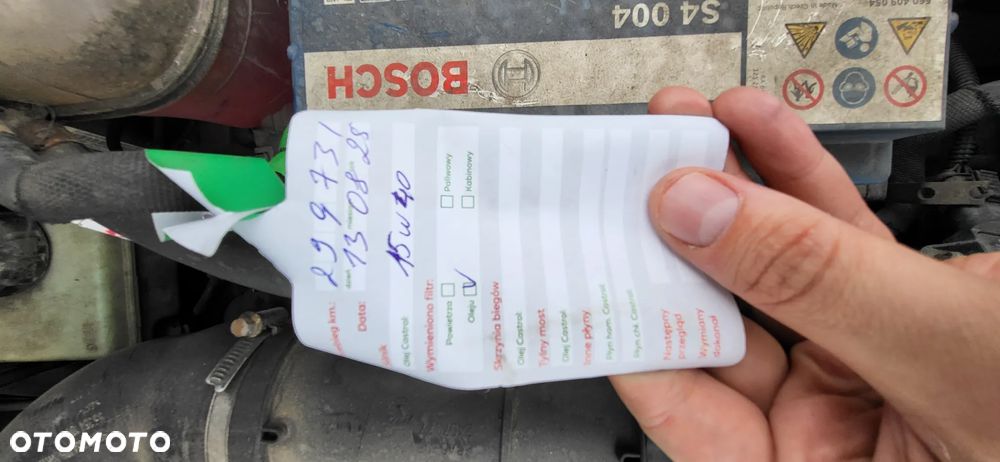 Przebieg km.: 299731
Data: 13 08 25
dzień miesiąc rok
Silnik
Olej Castrol: 15w40
Wymieniono filtr:
Powietrza Paliwowy
Oleju V Kabinowy
Skrzynia biegów
Olej Castrol:
Tylny most
Olej Castrol:
Inne płyny
Płyn ham. Castrol:
Płyn chł. Castrol:
Następny
przegląd
Wymiany
dokonał
S4 004
560 409 054
Made in Czech Republic
BOSCH
OTOMOTO